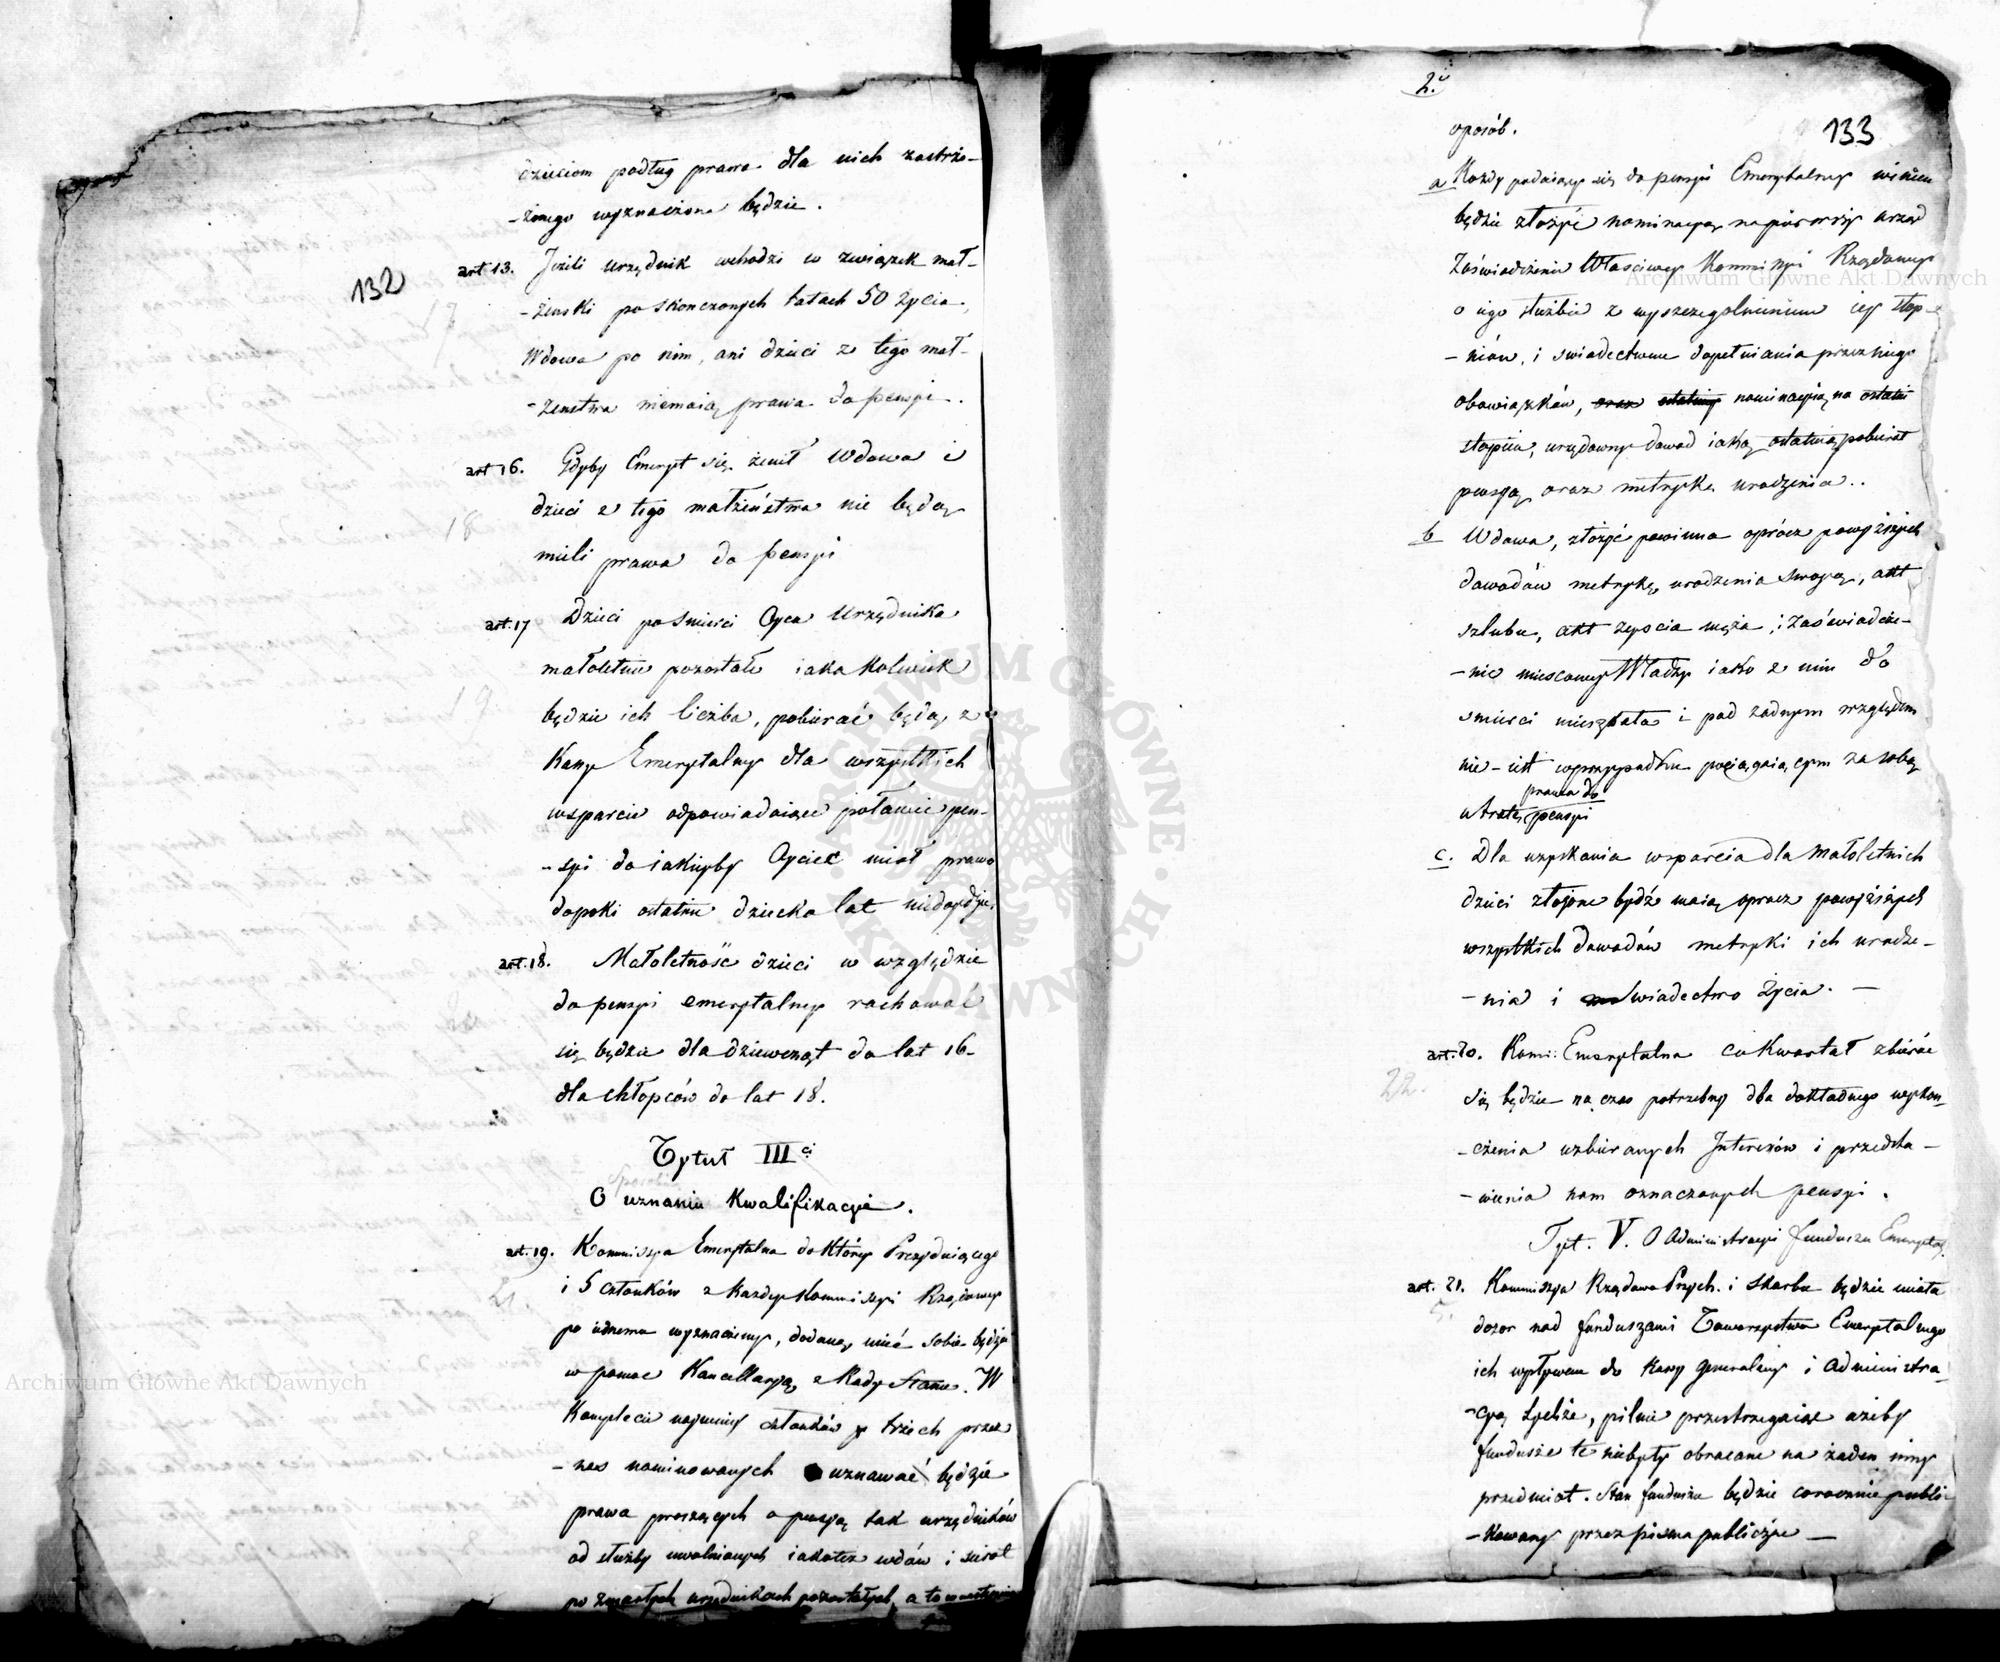 132
dzieciom podług prawa dla nich zastrze-
-żonego wyznaczone będzie.
art 13. Jeżeli urzędnik wchodzi w związek mał-
-żenski po skonczonych latach 50 życia,
Wdowa po nim, ani dzieci z tego mał-
-żenstwa niemaią prawa do pensyi.
art 16. Gdyby Emeryt się żenił Wdowa i
dzieci z tego małżeństwa nie będą
18
mieli prawa do pensyi
art. 17 Dzieci po śmierci Oyca Urzędnika
małoletnie pozostałe iaka kolwiek
19
będzie ich liczba, pobierać będą z
Kassy Emerytalney dla wszystkich
wsparcie odpowiadaiące połowie pen-
-syi do iakieyby Oyciec miał prawo
dopoki ostatnie dziecko lat niedoydzie.
art. 18. Małoletność dzieci w względzie
do pensyi emerytalney rachować
się będzie dla dziewcząt do lat 16-
dla chłopców do lat 18.
Tytuł III
O uznaniu Kwalifikacyi.
art. 19. Kommissya Emerytalna do któréy Prezyduiącego
i 5 członków z każdey Kommissyi Rządowey
po iednemu wyznaczemy, dodaną mieć sobie będzie
w pomoc Kancellaryą z Rady Stanu. W
Komplecie naymniey członków trzech przez
-nas nominowanych uznawać będzie
prawa proszących o pensyą tak urzędników
od służby uwolnionych iakoteż wdów i sierot
po zmarłych urzędnikach pozostałych, a to w następuiący
133
sposób.
a Każdy podaiący się do pensyi Emerytalney winien
będzie złożyć nominacyą na pierwszy urząd
Zaświadczenie Właściwey Kommissyi Rządowey
o iego służbie z wyszczególnieniem iey stop-
-niów, i swiadectwem dopełniania przez niego
obowiązków, oraz ostatnią nominacyią na ostatni
stopień, urzędowny dowod iaką ostatnią pobierał
pensyą oraz metrykę urodzenia..
b Wdowa, złożyć powinna oprócz powyższych
dowodów metrykę urodzenia swoią, akt
szlubu, akt zeyscia męża, i Zaświadcze-
-nie mieyscowey Władzy iako z nim do
smierci mieszkała i pod żadnym względem
nie iest w przypadku pociągaiącym za sobą
prawa do
utratę pensyi
c. Dla uzyskania wsparcia dla Małoletnich
dzieci złożone bydź maią oprocz powyższych
wszystkich dowodów metryki ich urodze-
-nia i swiadectwo życia. —
art. 20. Kom: Emerytalna co Kwartał zbierać
22.
się będzie na czas potrzebny dla dokładnego wykoń-
-czenia uzbieranych Interesów i przedsta-
-wienia nam oznaczonych pensyi.
Tyt. V. O Administracyi funduszu Emeryta.
art. 21. Kommissya Rządowa Przych. i Skarbu będzie miała
dozor nad funduszami Towarzystwa Emerytalnego
ich wpływem do Kassy generalney i Administra-
-cyą tychże, pilnie przestrzegaiąc ażeby
fundusze te niebyły obracane na żaden inny
przedmiot. Stan funduszu będzie corocznie publi-
-kowany przez pisma publiczne —
Archiwum Główne Akt Dawnych
Archiwum Główne Akt Dawnych
ARCHIWUM GŁÓWNE · AKT DAWNYCH ·